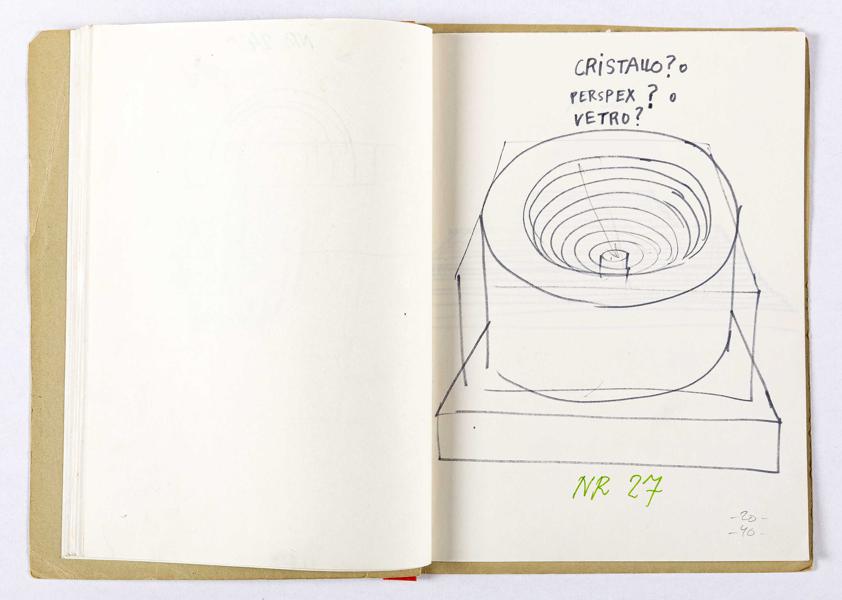 CRISTALLO? o
PERSPEX? o
VETRO?
NR 27
-20-
-40-